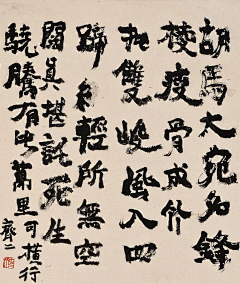 胡馬太宛名鋒
棱瘦骨成竹
批雙峻風入四
蹄輕所無空
闊真堪託死生
驍騰有此萬里可橫行
齊二